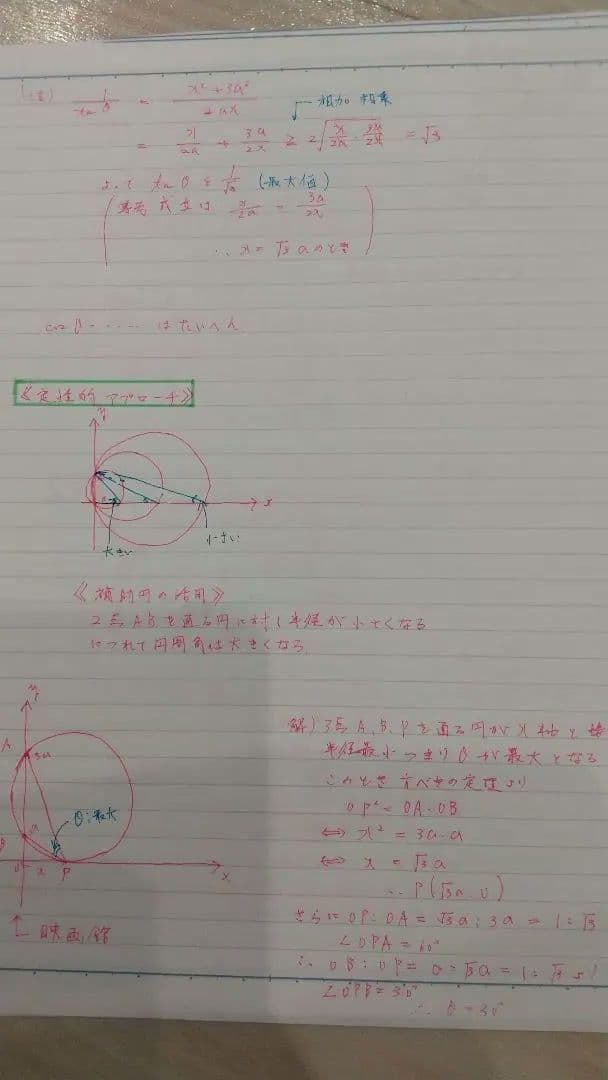 1/tanθ = x²+3a²/2ax
相加 相乗
= x/2a + 3a/2x ≧ 2√(x/2a・3a/2x) = √3
よって tanθ ≦ 1/√3 (最大値)
等号成立は x/2a = 3a/2x
∴ x = √3a のとき
cosθ ‥‥‥ はたいへん
《定性的アプローチ》
y
x
大きい
小さい
《補助円の活用》
2点A,Bを通る円に対し半径が小さくなる
につれて円周角は大きくなる
y
A
3a
θ:最大
a
B
0 x P
x
↑映画館
解) 3点A,B,Pを通る円がx軸と接
半径最小つまりθが最大となる
このとき方べきの定理より
OP² = OA・OB
⇔ x² = 3a・a
⇔ x = √3a
∴ P(√3a, 0)
さらにOP:OA = √3a:3a = 1:√3
∠OPA = 60°
∴ OB:OP = a:√3a = 1:√3より
∠OPB = 30°
∴ θ = 30°